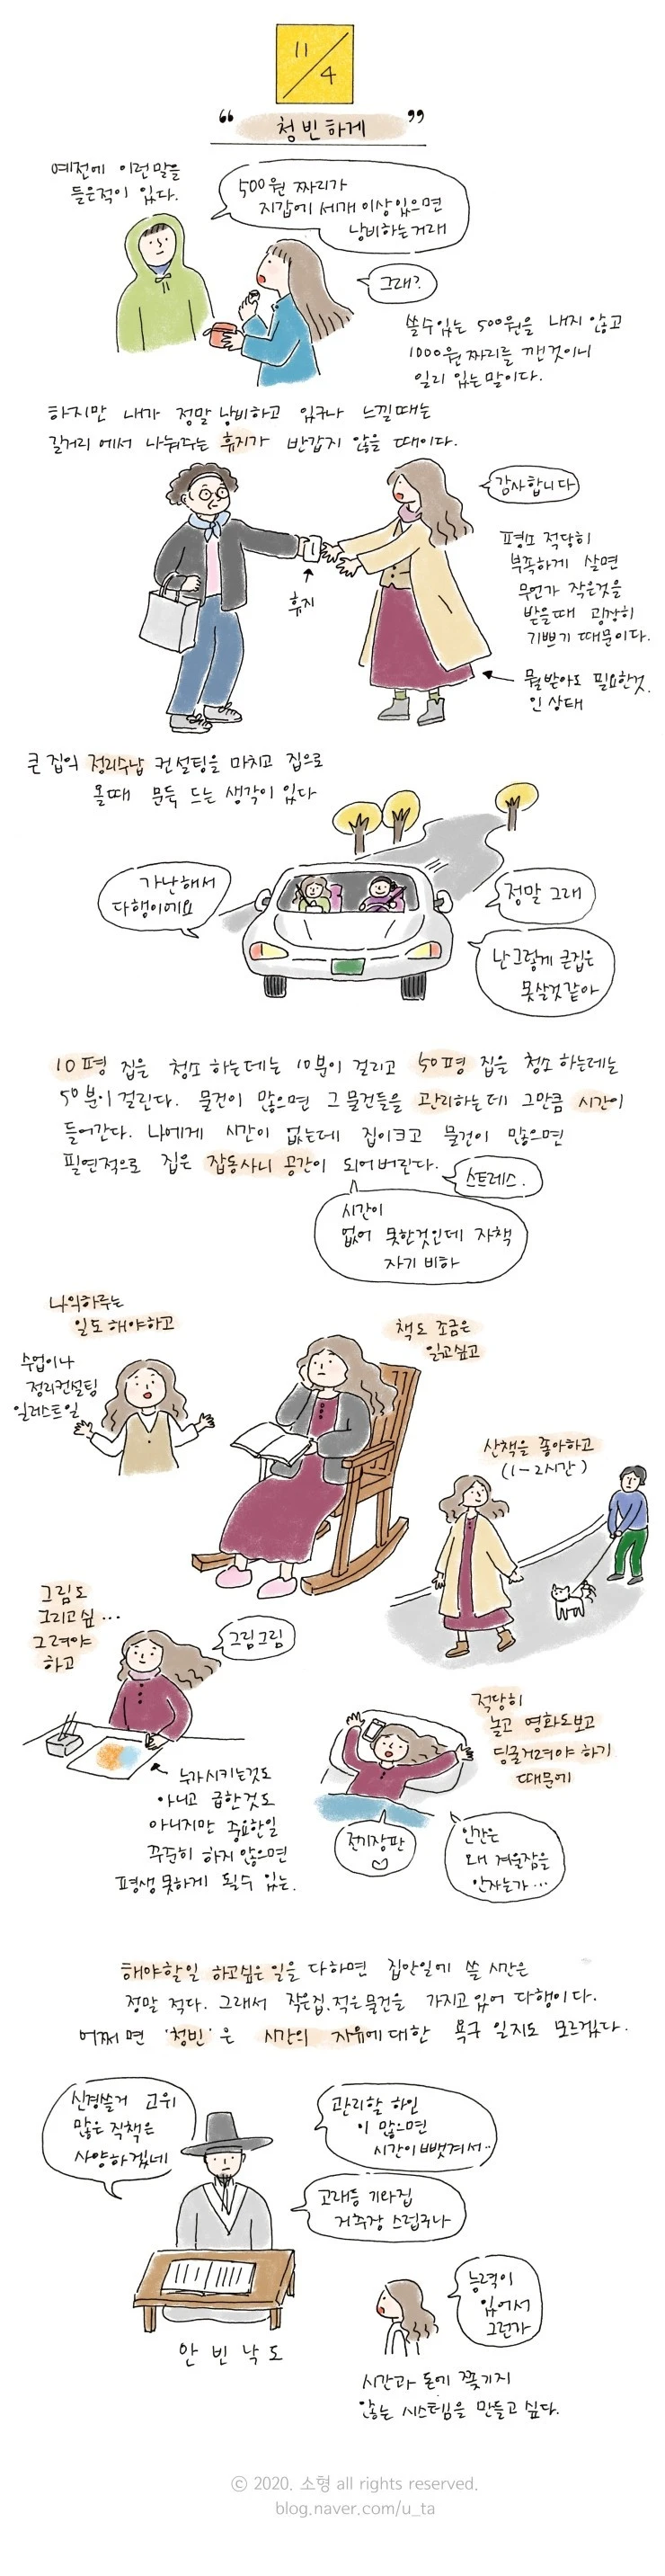 11/4
“ 청빈하게 ”
예전에 이런말을
들은적이 있다.
500원 짜리가
지갑에 세개 이상있으면
낭비하는거래
그래?
쓸수있는 500원을 내지 않고
1000원 짜리를 깬것이니
일리 있는 말이다.
하지만 내가 정말 낭비하고 있구나 느낄때는
길거리에서 나눠주는 휴지가 반갑지 않을 때이다.
감사합니다
휴지
평소 적당히
부족하게 살면
무언가 작은것을
받을때 굉장히
기쁘기 때문이다.
뭘받아도 필요한것.
인 상태
큰 집의 정리수납 컨설팅을 마치고 집으로
올때 문득 드는 생각이 있다
가난해서
다행이에요
정말 그래
난그렇게 큰집은
못살것 같아
10평 집을 청소 하는데는 10분이 걸리고 50평 집을 청소 하는데는
50분이 걸린다. 물건이 많으면 그 물건들을 관리하는데 그만큼 시간이
들어간다. 나에게 시간이 없는데 집이크고 물건이 많으면
필연적으로 집은 잡동사니 공간이 되어버린다.
스트레스.
시간이
없어 못한것인데 자책
자기 비하
나의하루는
일도 해야하고
수업이나
정리컨설팅
일러스트일
책도 조금은
읽고싶고
산책을 좋아하고
(1-2시간)
그림도
그리고싶...
그려야
하고
그림그림
누가시키는것도
아니고 급한것도
아니지만 중요한일
꾸준히 하지 않으면
평생 못하게 될수 있는.
적당히
놀고 영화도보고
딩굴거려야 하기
때문에
전기장판
인간은
왜 겨울잠을
안자는가...
해야할일 하고싶은 일을 다하면 집안일에 쓸 시간은
정말 적다. 그래서 작은집, 적은물건을 가지고 있어 다행이다.
어쩌면 '청빈'은 시간의 자유에 대한 욕구 일지도 모르겠다.
신경쓸거
많은 고위
직책은
사양하겠네
관리할 하인
이 많으면
시간이 뺏겨서..
고래등 기와집
거추장 스럽구나
안 빈 낙 도
능력이
있어서
그런가
시간과 돈에 쫓기지
않는 시스템을 만들고 싶다.
ⓒ 2020. 소형 all rights reserved.
blog.naver.com/u_ta